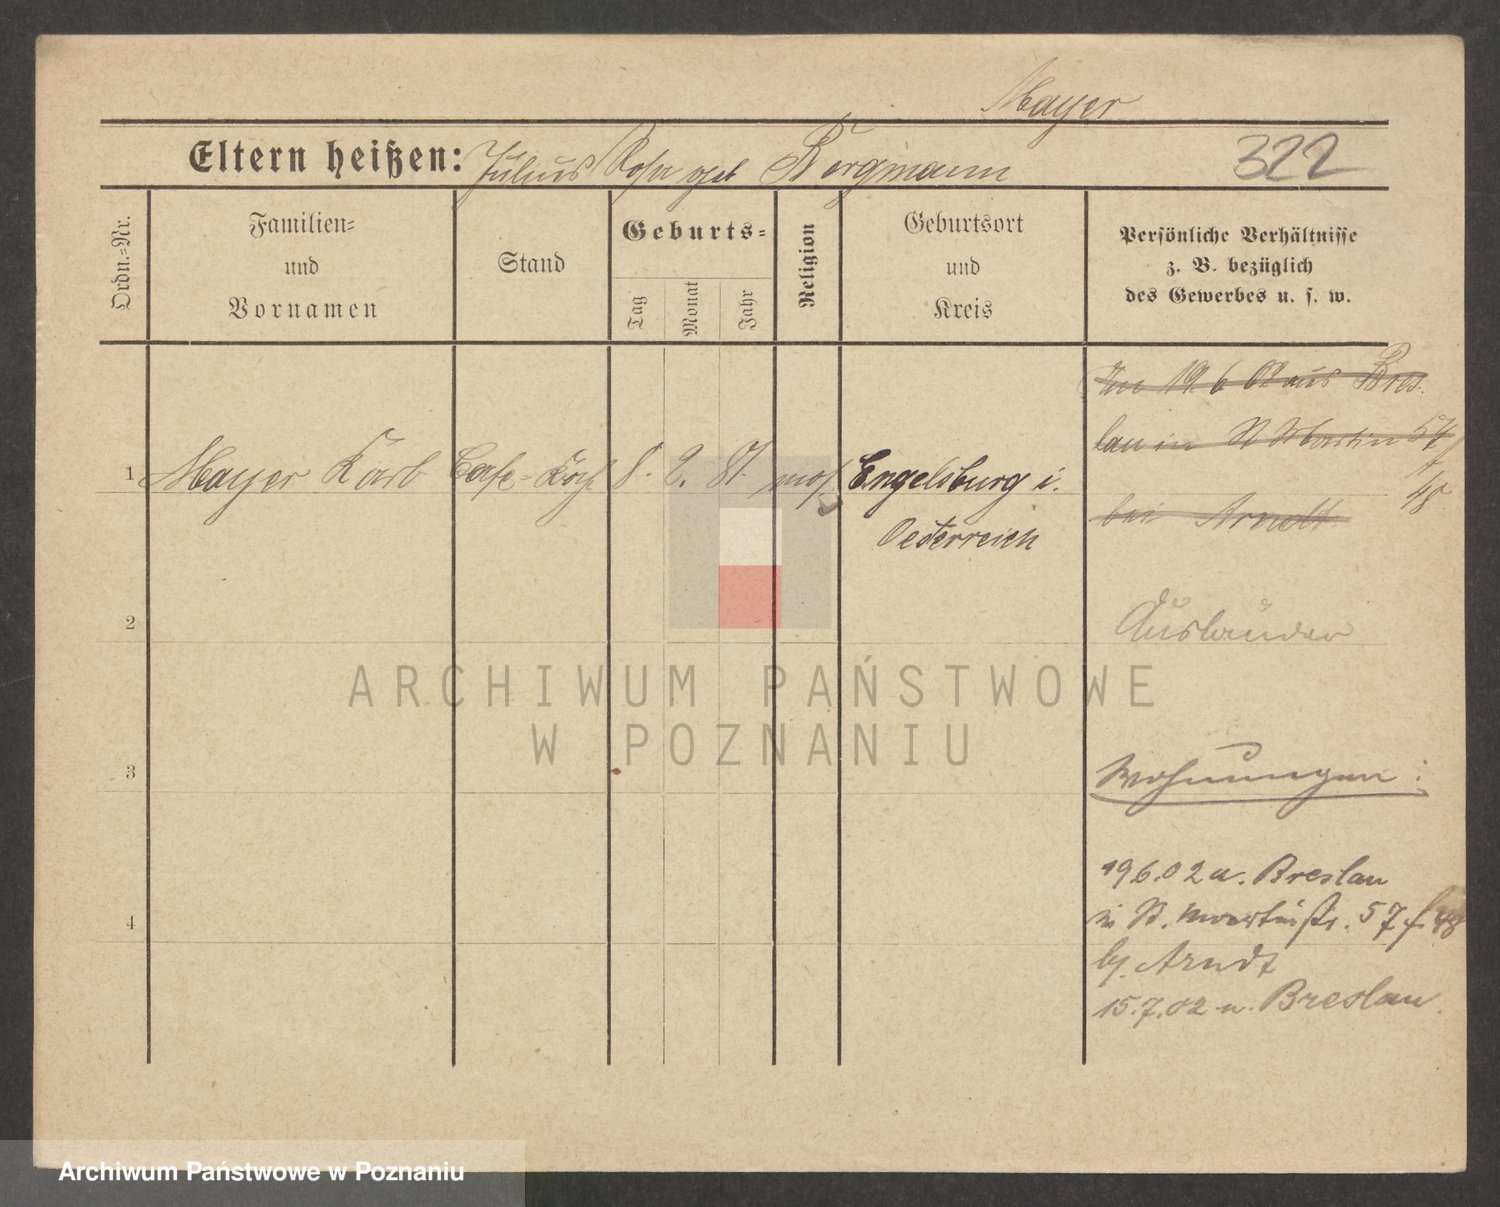 Mayer
Eltern heißen: Julius Rosa geb Bergmann
322
Ordn.-Nr.
Familien-
und
Vornamen
Stand
Geburts-
Tag
Monat
Jahr
Religion
Geburtsort
und
Kreis
Persönliche Verhältnisse
z. B. bezüglich
des Gewerbes u. s. w.
19 6 02 aus Bres-
lau in St Martin 57
48
bei Arndt
1
Mayer Karl
8. 2. 81.
mos
Engelsburg i.
Oesterreich
2
Ausländer
ARCHIWUM PAŃSTWOWE
W POZNANIU
3
Wohnungen:
19 6.02 a. Breslau
in St. Martinstr. 57 f. 48
4
bj. Arndt
15.7.02 n. Breslau.
Archiwum Państwowe w Poznaniu